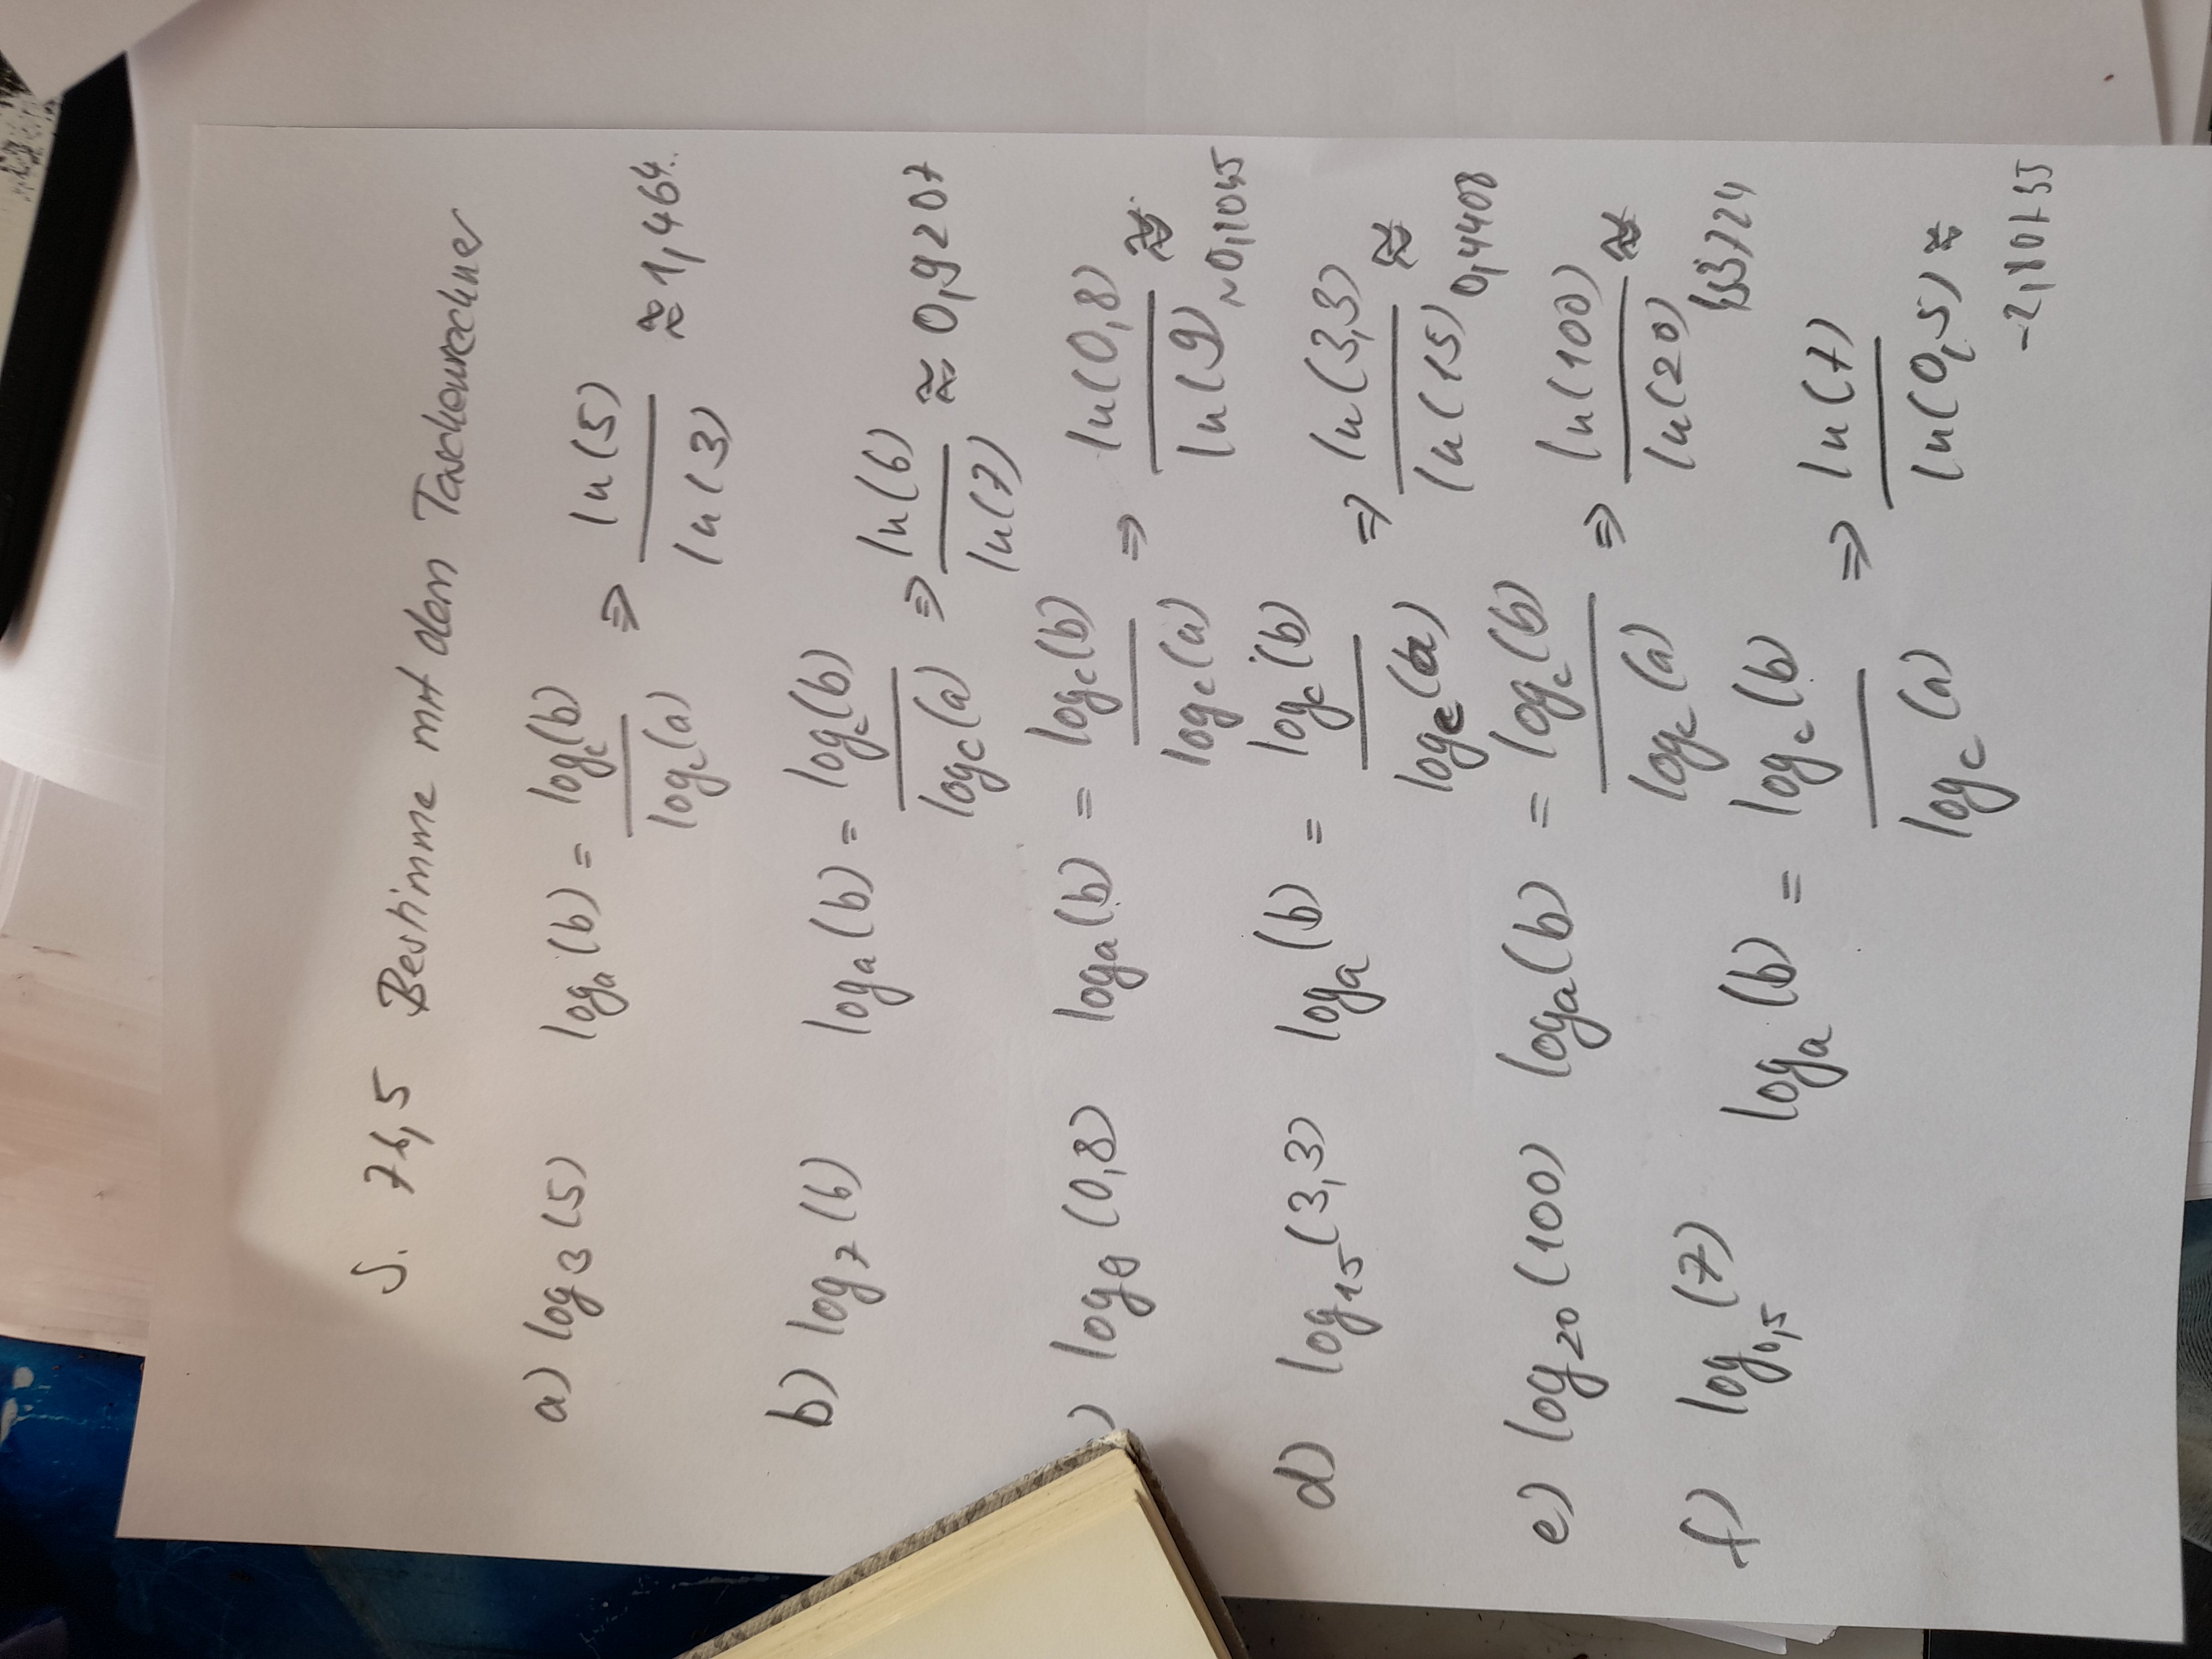 S. 76,5 Bestimme mit dem Taschenrechner
a) log₃(5) logₐ(b) = log_c(b) / log_c(a) ⇒ ln(5) / ln(3) ≈ 1,464..
b) log₇(6) logₐ(b) = log_c(b) / log_c(a) ⇒ ln(6) / ln(7) ≈ 0,9207
) log₉(0,8) logₐ(b) = log_c(b) / log_c(a) ⇒ ln(0,8) / ln(9) ≈ ~0,1045
d) log₁₅(3,3) logₐ(b) = log_c(b) / log_c(a) ⇒ ln(3,3) / ln(15) ≈ 0,4408
e) log₂₀(100) logₐ(b) = log_c(b) / log_c(a) ⇒ ln(100) / ln(20) ≈
f) log₀,₅(7) logₐ(b) = log_c(b) / log_c(a) ⇒ ln(7) / ln(0,5) ≈